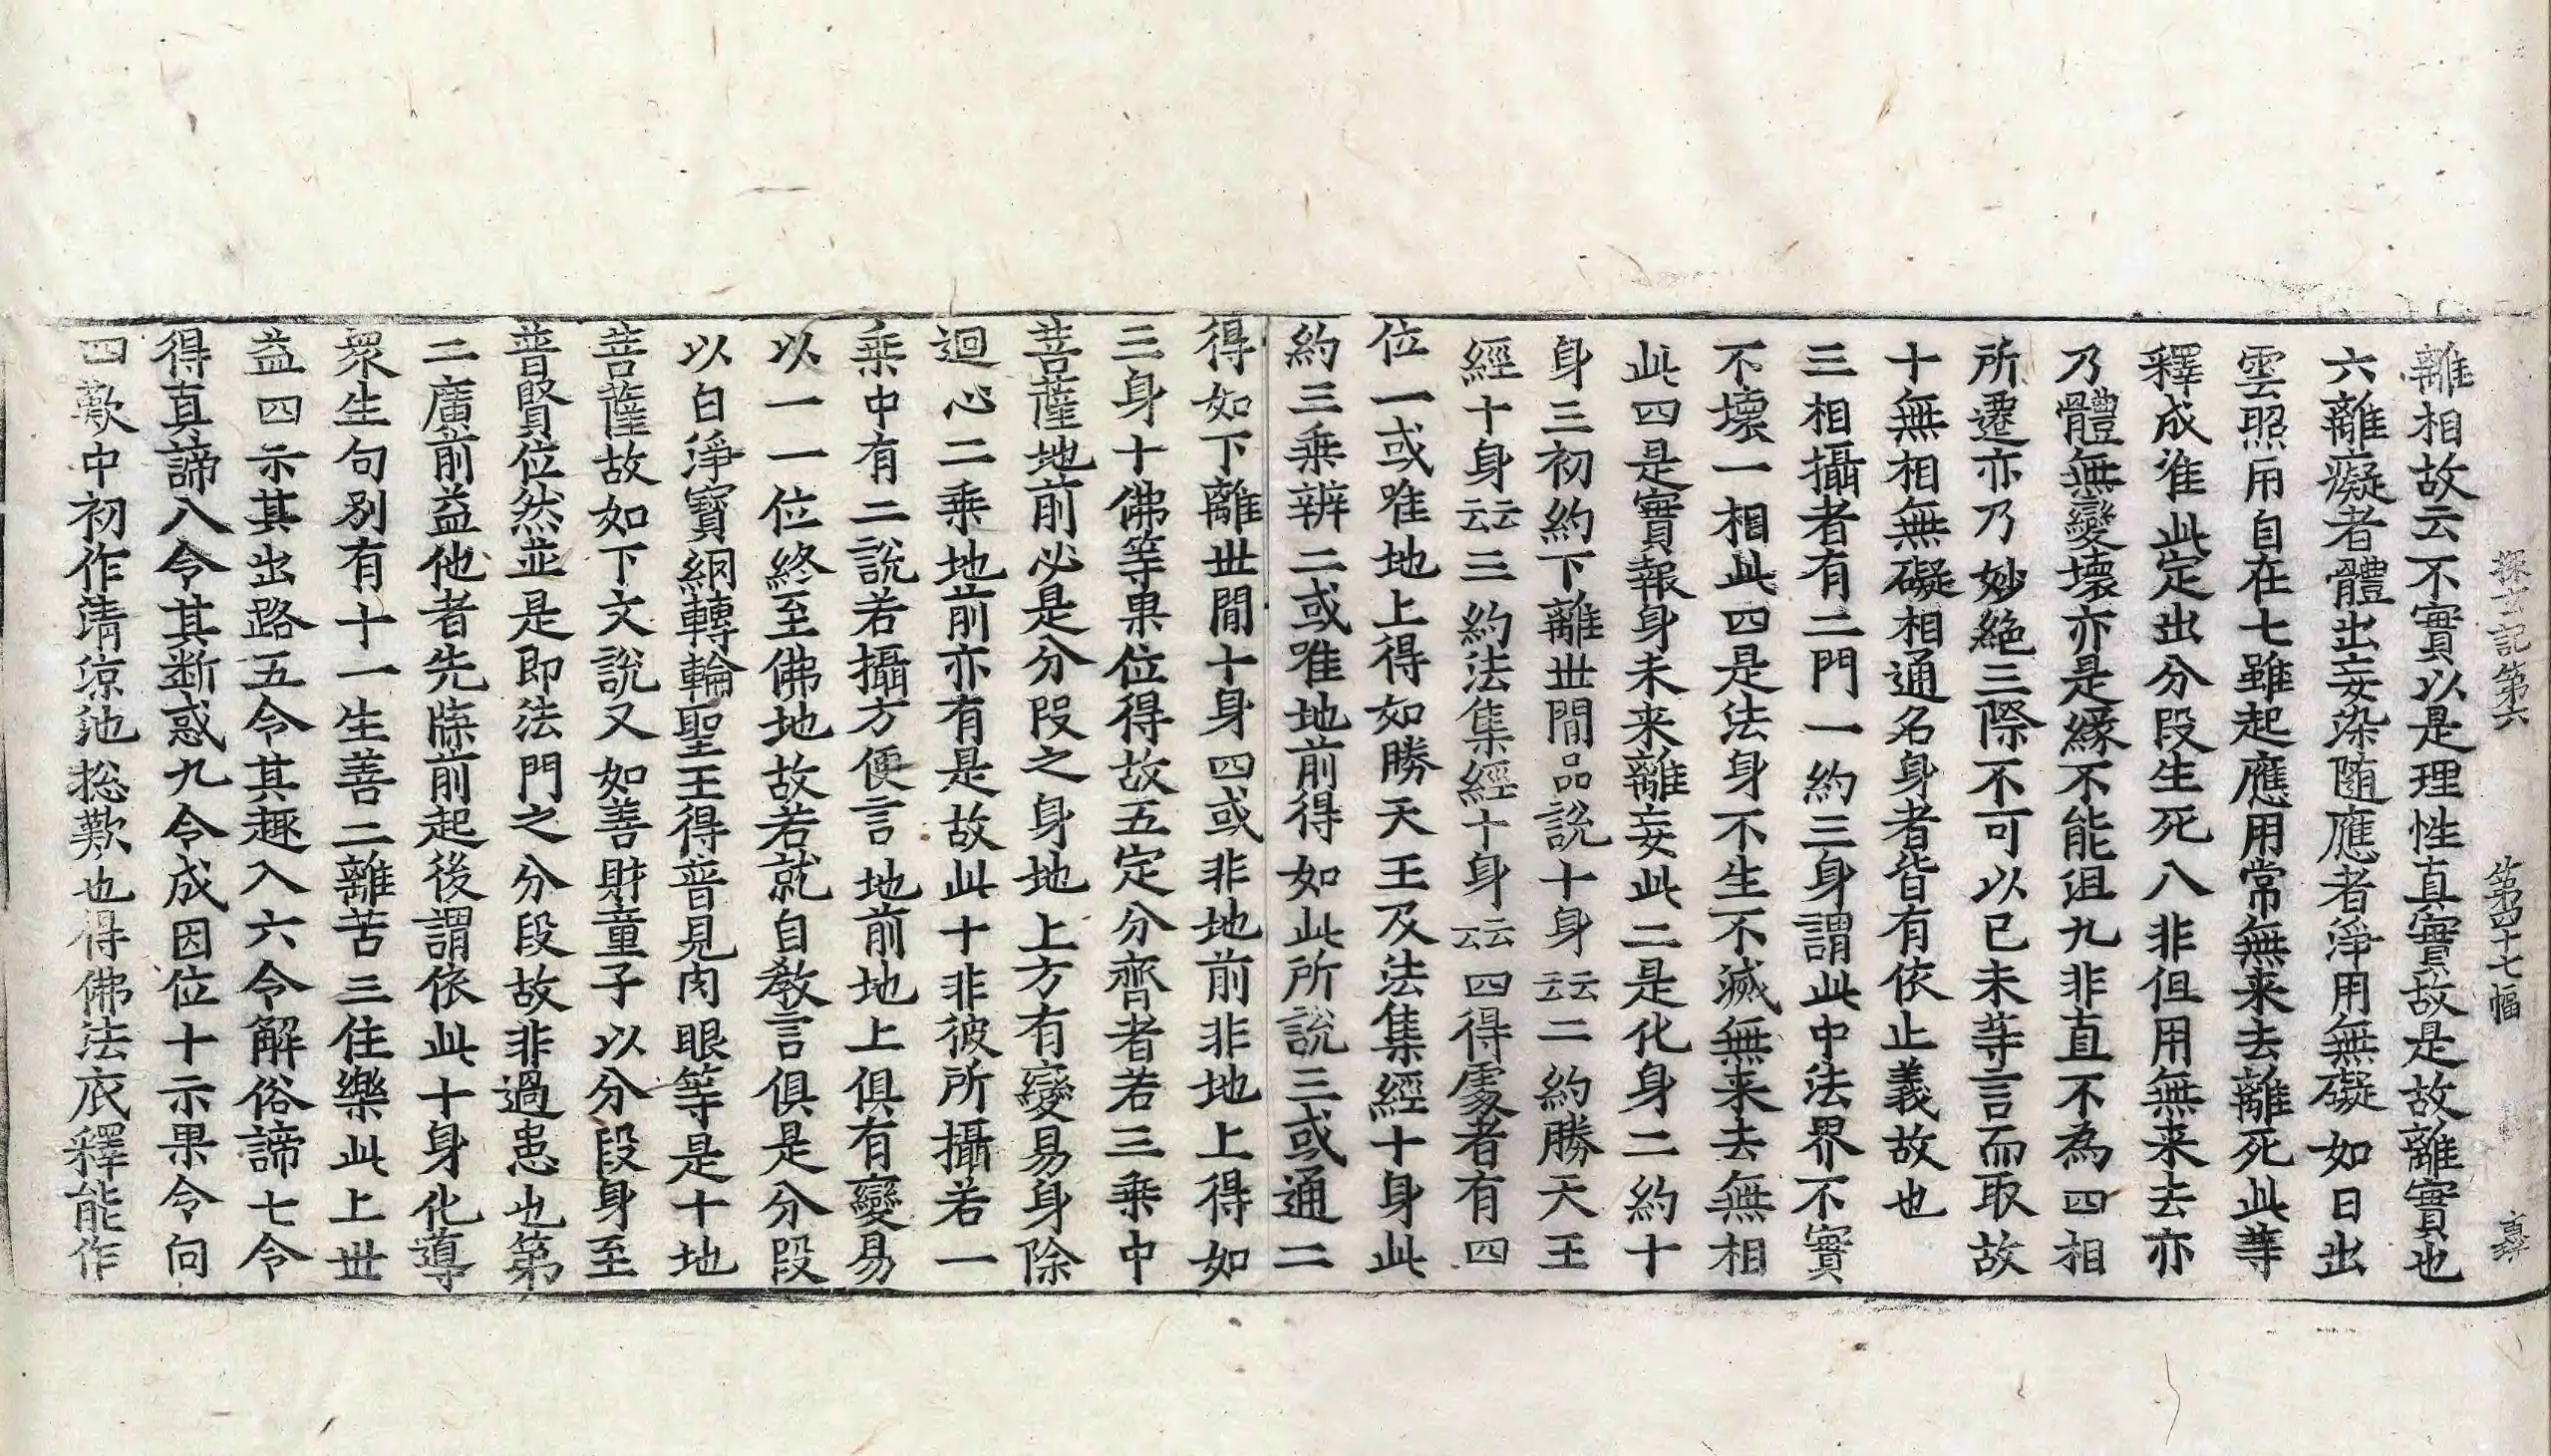 探玄記第六 第四十七幅
離相故云不實以是理性真實故是故離實也
六離癡者體出妄染随應者淨用無礙如日出
雲照用自在七雖起應用常無来去離死此等
釋成准此定出分段生死八非但用無来去亦
乃體無變壞亦是緣不能沮九非直不為四相
所遷亦乃妙絕三際不可以已未等言而取故
十無相無礙相通名身者皆有依止義故也
三相攝者有二門一約三身謂此中法界不實
不壞一相此四是法身不生不滅無来去無相
此四是實報身未来離妄此二是化身二約十
身三初約下離世間品說十身云云二約勝天王
經十身云云三約法集經十身云云四得處者有四
位一或唯地上得如勝天王及法集經十身此
約三乗辨二或唯地前得如此所說三或通二
得如下離世間十身四或非地前非地上得如
三身十佛等果位得故五定分齊者若三乗中
菩薩地前必是分段之身地上方有變易身除
迴心二乗地前亦有是故此十非彼所攝若一
乗中有二說若攝方便言地前地上俱有變易
以一一位終至佛地故若就自教言俱是分段
以白淨寳網轉輪聖王得普見肉眼等是十地
菩薩故如下文說又如善財童子以分段身至
普賢位然並是即法門之分段故非過患也第
二廣前益他者先牒前起後謂依此十身化導
衆生句別有十一生善二離苦三住樂此上世
益四示其出路五令其趣入六令解俗諦七令
得真諦八令其断惑九令成因位十示果令向
四歎中初作清凉池捴歎也得佛法底釋能作